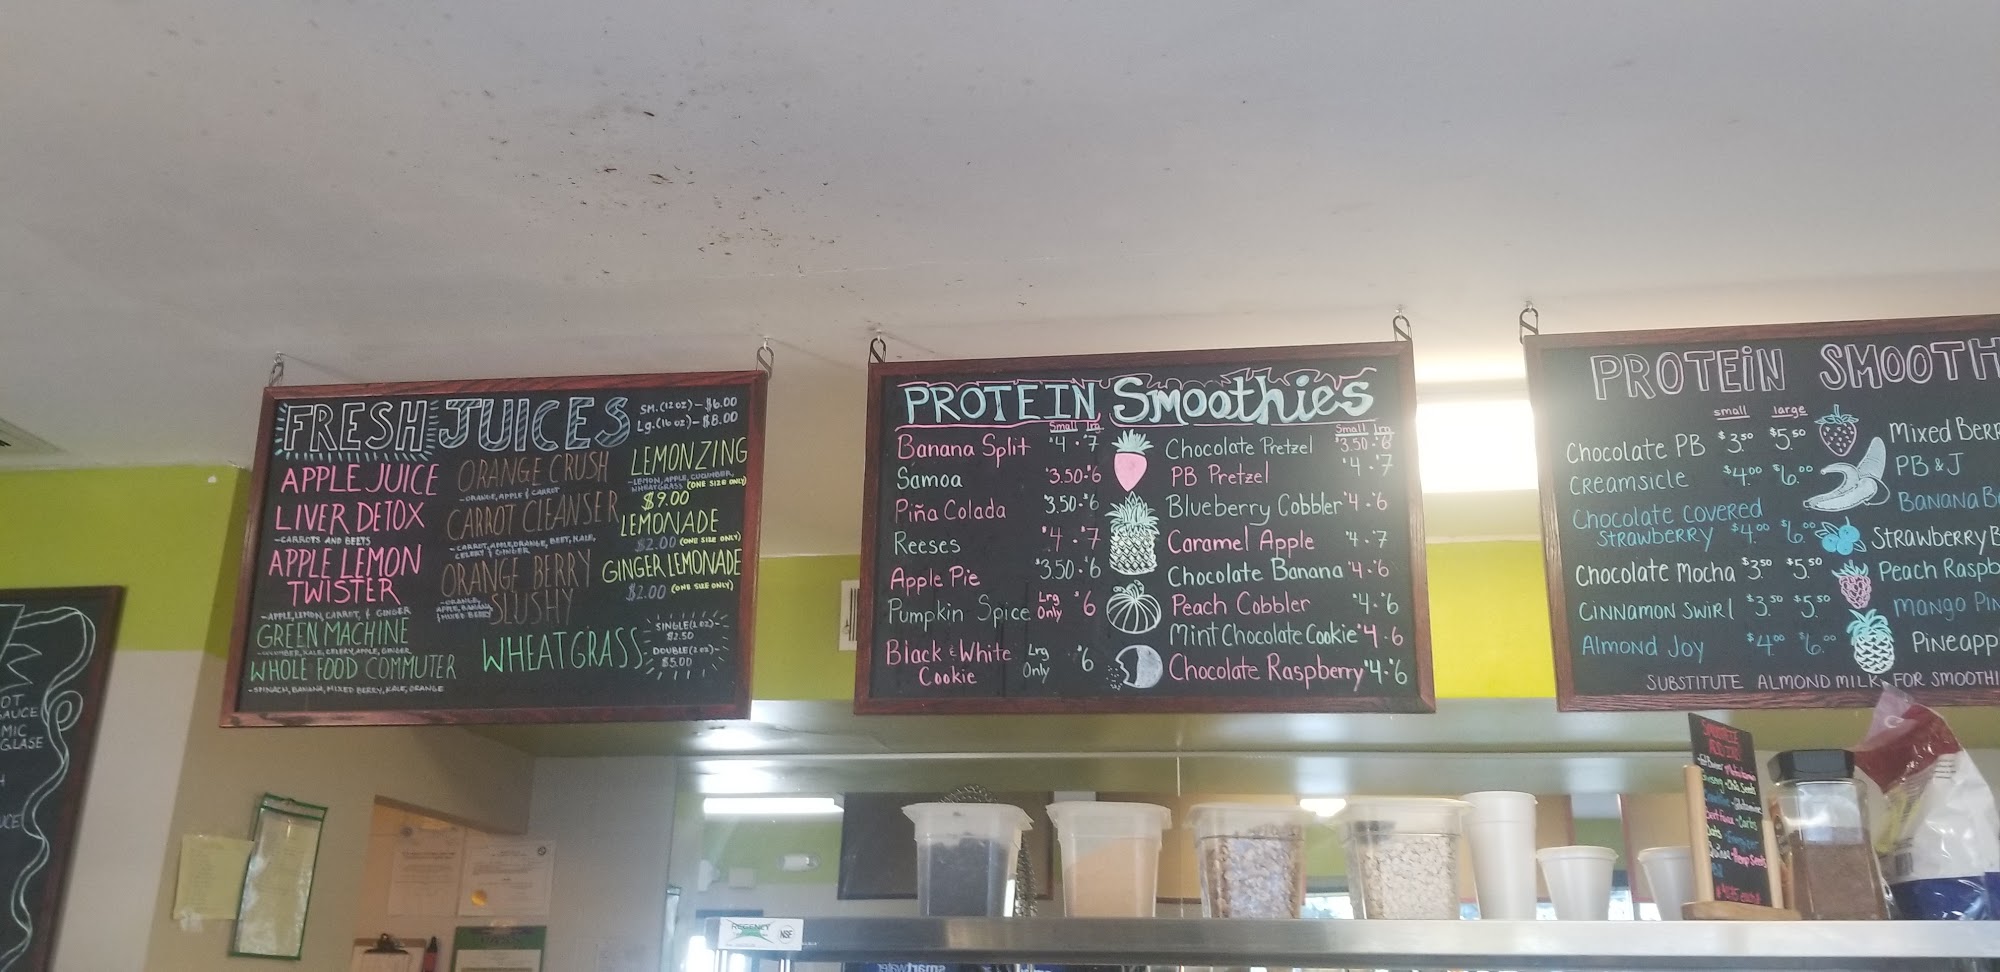 FRESH JUICES
SM. (12 OZ) - $6.00
Lg. (16 OZ) - $8.00
APPLE JUICE
LIVER DETOX
- CARROTS AND BEETS
APPLE LEMON
TWISTER
- APPLE, LEMON, CARROT, & GINGER
GREEN MACHINE
- CUCUMBER, KALE, CELERY, APPLE, GINGER
WHOLE FOOD COMMUTER
- SPINACH, BANANA, MIXED BERRY, KALE, ORANGE
ORANGE CRUSH
- ORANGE, APPLE & CARROT
CARROT CLEANSER
- CARROT, APPLE, ORANGE, BEET, KALE,
CELERY & GINGER
ORANGE BERRY
SLUSHY
- ORANGE,
APPLE, BANANA
& MIXED BERRY
WHEATGRASS
SINGLE (1 OZ) -
$2.50
DOUBLE (2 OZ) -
$5.00
LEMONZING
- LEMON, APPLE, CUCUMBER,
WHEATGRASS (ONE SIZE ONLY)
$9.00
LEMONADE
$2.00 (ONE SIZE ONLY)
GINGER LEMONADE
$2.00 (ONE SIZE ONLY)
PROTEIN Smoothies
Small lrg
Banana Split $4 · $7
Samoa $3.50 · $6
Piña Colada $3.50 · $6
Reeses $4 · $7
Apple Pie $3.50 · $6
Pumpkin Spice Lrg Only $6
Black & White Cookie Lrg Only $6
Small lrg
Chocolate Pretzel $3.50 · $6
PB Pretzel $4 · $7
Blueberry Cobbler $4 · $6
Caramel Apple $4 · $7
Chocolate Banana $4 · $6
Peach Cobbler $4 · $6
Mint Chocolate Cookie $4 · $6
Chocolate Raspberry $4 · $6
PROTEIN SMOOTH
small large
Chocolate PB $3.50 $5.50
Creamsicle $4.00 $6.00
Chocolate covered
strawberry $4.00 $6.00
Chocolate Mocha $3.50 $5.50
Cinnamon Swirl $3.50 $5.50
Almond Joy $4.00 $6.00
Mixed Berr
PB & J
Banana B
Strawberry B
Peach Raspb
Mango Pin
Pineapp
SUBSTITUTE ALMOND MILK FOR SMOOTHI
OT
SAUCE
MIC
GLASE
REGENCY
NSF
smartwater